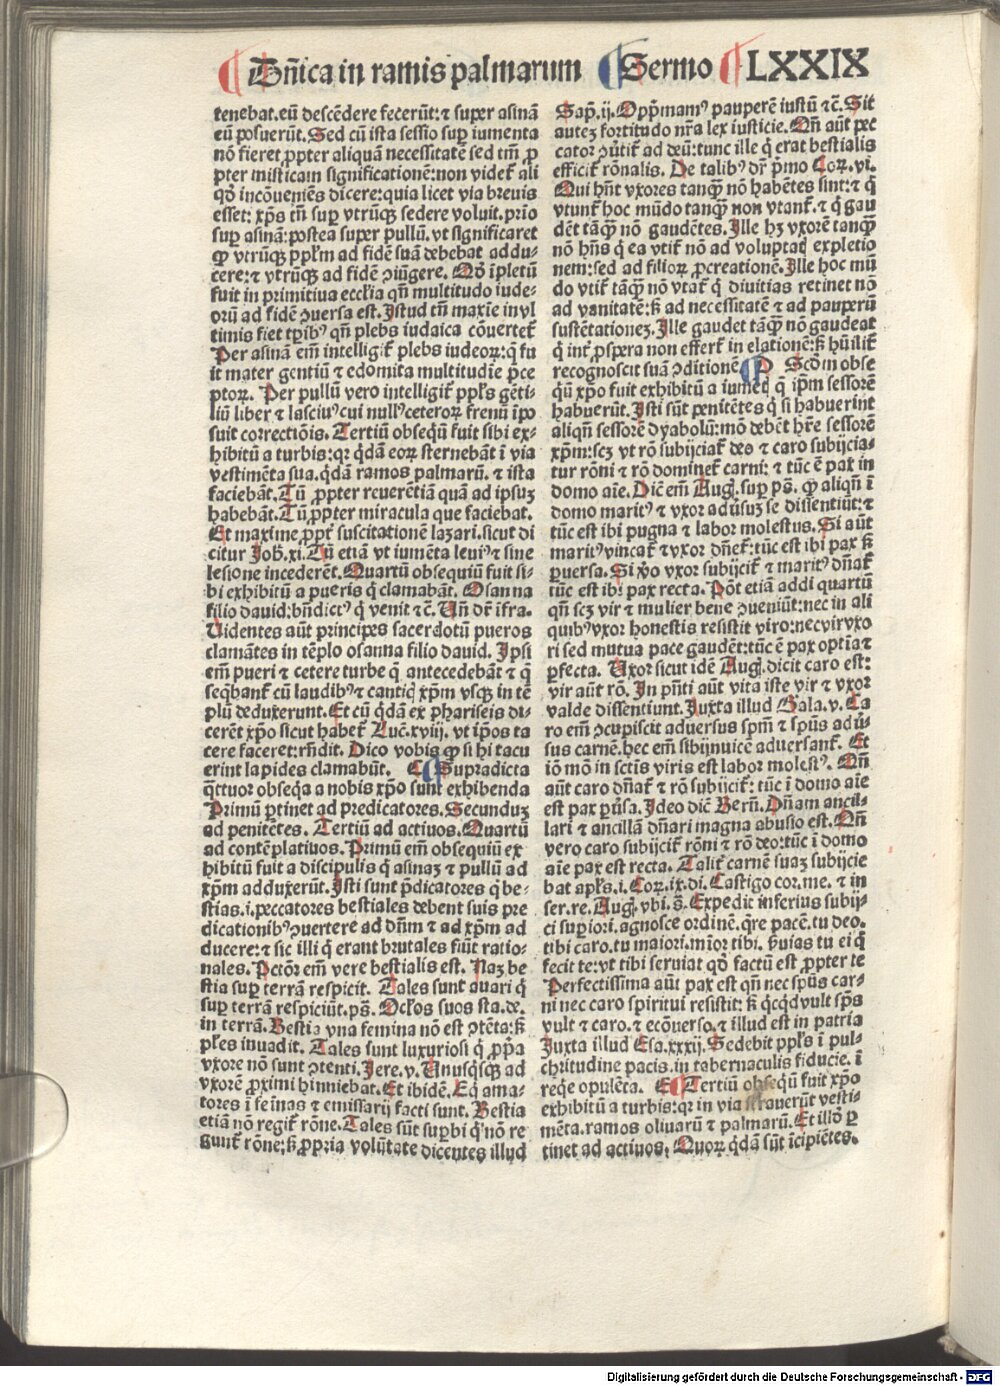 Dñica in ramis palmarum Sermo LXXIX
tenebat.eū descēdere fecerūt:⁊ super asinā
eū posuerūt.Sed cū ista sessio sup iumenta
nō fieret ꝓpter aliquā necessitatē sed tm̄ ꝓ
pter misticam significationē:non videt̄ ali
qd̄ incōueniēs dicere:quia licet via breuis
esset: xp̄s tn̄ sup vtrūqꝫ sedere voluit.prio
sup asinā:postea super pullū.vt significaret
ꝙ vtrūqꝫ ppl̄m ad fidē suā debebat addu⸗
cere:⁊ vtrūqꝫ ad fidē ꝯiūgere. Qd̄ īpletū
fuit in primitiua eccl̄ia qn̄ multitudo iude⸗
orū ad fidē ꝯuersa est.Istud tn̄ maxīe in vl
timis fiet tꝑibꝰ qn̄ plebs iudaica cōuertet̄
Per asinā em̄ intelligit̄ plebs iudeoꝝ:q̄ fu
it mater gentiū ⁊ edomita multitudīe p̄ce
ptoꝝ. Per pullū vero intelligit̄ ppl̄s gēti⸗
liū liber ⁊ lasciuꝰcui nullꝰceteroꝝ frenū īpo
suit correctiōis.Tertiū obseqū fuit sibi ex⸗
hibitū a turbis:qꝛ q̄dā eoꝝ sternebāt ī via
vestimēta sua.q̄dā ramos palmarū. ⁊ ista
faciebāt.Tū ꝓpter reuerētiā quā ad ipsuꝫ
habebāt.Tū ꝓpter miracula que faciebat.
Et maxime ꝓpt̄ suscitationē lazari.sicut di
citur Joh̄.xi.Tū etiā vt iumēta leuiꝰ⁊ sine
lesione incederēt.Quartū obsequiū fuit si⸗
bi exhibitū a pueris q̄ clamabāt. Osanna
filio dauid:bn̄dictꝰ q̄ venit ⁊c̄.Vn̄ dr̄ īfra.
Videntes aūt principes sacerdotū pueros
clamātes in tēplo osanna filio dauid. Ipsi
em̄ pueri ⁊ cetere turbe q̄ antecedebāt ⁊ q̄
seq̄bant̄ cū laudibꝰ⁊ cantiq̄ xp̄m vsqꝫ in tē
plū deduxerunt.Et cū q̄dā ex phariseis di⸗
cerēt xp̄o sicut habet̄ Luc̄.xviij. vt ip̄os ta
cere faceret:rn̄dit. Dico vobis ꝙ si hi tacu
erint lapides clamabūt. C Supradicta
q̄ttuor obseq̄a a nobis xp̄o sunt exhibenda
Primū ꝑtinet ad predicatores.Secunduꝫ
ad penitētes. Tertiū ad actiuos.Quartū
ad contēplatiuos.Primū em̄ obsequiū ex
hibitū fuit a discipulis q̄ asinaꝫ ⁊ pullū ad
xp̄m adduxerūt.Isti sunt p̄dicatores q̄ be⸗
stias.i.peccatores bestiales debent suis pre
dicationibꝰꝯuertere ad dn̄m ⁊ ad xp̄m ad
ducere:⁊ sic illi q̄ erant brutales fiūt ratio⸗
nales. Pctōr em̄ vere bestialis est. Naꝫ be
stia sup terrā respicit. Tales sunt auari q̄
sup terrā respiciūt.ps̄. Ocl̄os suos sta.de.
in terrā.Bestia vna femina nō est ꝯtēta:ß
pl̄es inuadit. Tales sunt luxuriosi q̄ ꝓp̄a
vxore nō sunt ꝯtenti.Jere.v.Vnusqsqꝫ ad
vxorē ꝓximi hinniebat.Et ibidē. Eq̄ ama⸗
tores ī feīnas ⁊ emissarij facti sunt. Bestia
etiā nō regit̄ rōne.Tales sūt supbi q̄ nō re
gunt̄ rōne:ß ꝓpria volūtate dicentes illud
Sap̄.ij.Opp̄mamꝰ pauperē iustū ⁊c̄.Sit
auteꝫ fortitudo nr̄a lex iusticie.Qn̄ aūt pec
cator ꝯūtit̄ ad deū:tunc ille q̄ erat bestialis
efficit̄ rōnalis. De talibꝰ dr̄ p̄mo Coꝝ.vi.
Qui hn̄t vxores tanqꝫ nō habētes sint:⁊ q̄
vtunt̄ hoc mūdo tanqꝫ non vtant̄.⁊ q̄ gau
dēt tāqꝫ nō gaudētes.Ille hꝫ vxorē tanqꝫ
nō hn̄s q̄ ea vtit̄ nō ad voluptaꝭ expletio
nem:sed ad filioꝝ ꝓcreationē.Ille hoc mū
do vtit̄ tāqꝫ nō vtat̄ q̄ diuitias retinet nō
ad vanitatē:ß ad necessitatē ⁊ ad pauperū
sustētationeꝫ.Ille gaudet tāqꝫ nō gaudeat
q̄ int̄ ꝓspera non effert̄ in elationē:ß hūilit̄
recognoscit suā ꝯditionē. D Scd̄m obse
qū xp̄o fuit exhibitū a iumeꝭ q̄ ip̄m sessorē
habuerūt.Isti sūt penitētes q̄ si habuerint
aliqn̄ sessorē dyabolū:mō debēt hr̄e sessorē
xp̄m:scꝫ vt rō subijciat̄ deo ⁊ caro subijcia⸗
tur rōni ⁊ rō dominet̄ carni: ⁊ tūc ē pax in
domo aīe.Dic̄ em̄ Auḡ.sup ps̄. ꝙ aliqn̄ ī
domo maritꝰ ⁊ vxor adūsuꝫ se dissentiūt: ⁊
tūc est ibi pugna ⁊ labor molestus. Si aūt
maritꝰvincat̄ ⁊vxor dn̄et̄:tūc est ibi pax ß
ꝑuersa. Si ꝟo vxor subijcit̄ ⁊ maritꝰ dn̄at̄
tūc est ibi pax recta. Pōt etiā addi quartū
qn̄ scꝫ vir ⁊ mulier bene ꝯueniūt:nec in ali
quibꝰvxor honestis resistit viro:necvirvxo
ri sed mutua pace gaudēt:tūc ē pax optīa⁊
ꝑfecta. Vxor sicut idē Auḡ.dicit caro est:
vir aūt rō. In pn̄ti aūt vita iste vir ⁊ vxor
valde dissentiunt. Juxta illud Gala.v. Ca
ro em̄ ꝯcupiscit aduersus spm̄ ⁊ spūs adū⸗
sus carnē.hec em̄ sibijnuicē aduersant̄. Et
iō mō in sctīs viris est labor molestꝰ. Qn̄
aūt caro dn̄at̄ ⁊ rō subijcit̄: tūc ī domo aīe
est pax ꝑūsa. Ideo dic̄ Bern̄.Dn̄am ancil⸗
lari ⁊ ancillā dn̄ari magna abusio est.Qn̄
vero caro subijcit̄ rōni ⁊ rō deo:tūc ī domo
aīe pax est recta. Talit̄ carnē suaꝫ subijcie
bat apl̄s.i.Coꝝ.ix.di.Castigo cor.me. ⁊ in
ser.re.Auḡ.vbi.s̄.Expedit inferius subij⸗
ci supiori.agnosce ordinē.q̄re pacē.tu deo.
tibi caro.tu maiori.mīor tibi. ẞuias tu ei q̄
fecit te:vt tibi seruiat qd̄ factū est ꝓpter te
Perfectissima aūt pax est qn̄ nec spūs car⸗
ni nec caro spiritui resistit: ß qcqdvult sp̄s
vult ⁊ caro.⁊ ecōuerso.⁊ illud est in patria
Juxta illud Esa.xxxij.Sedebit ppl̄s ī pul⸗
chritudine pacis.in tabernaculis fiducie.ī
reqe opulēta. E Tertiū obseqū fuit xp̄o
exhibitū a turbis:qꝛ in via strauerūt vesti⸗
mēta.ramos oliuarū ⁊ palmarū.Et illd̄ ꝑ
tinet ad actiuos. Quoꝝ q̄dā sūt īcipiētes.
Digitalisierung gefördert durch die Deutsche Forschungsgemeinschaft - DFG